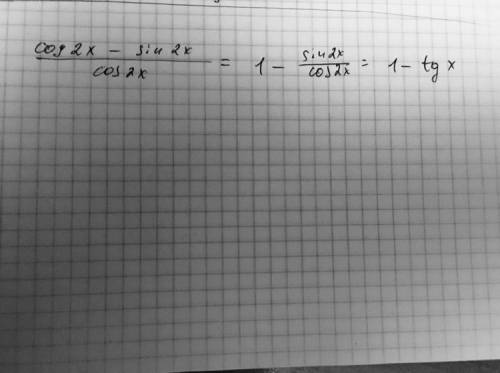 (cos 2x - sin 2x) / cos 2x = 1 - sin 2x / cos 2x = 1 - tg x